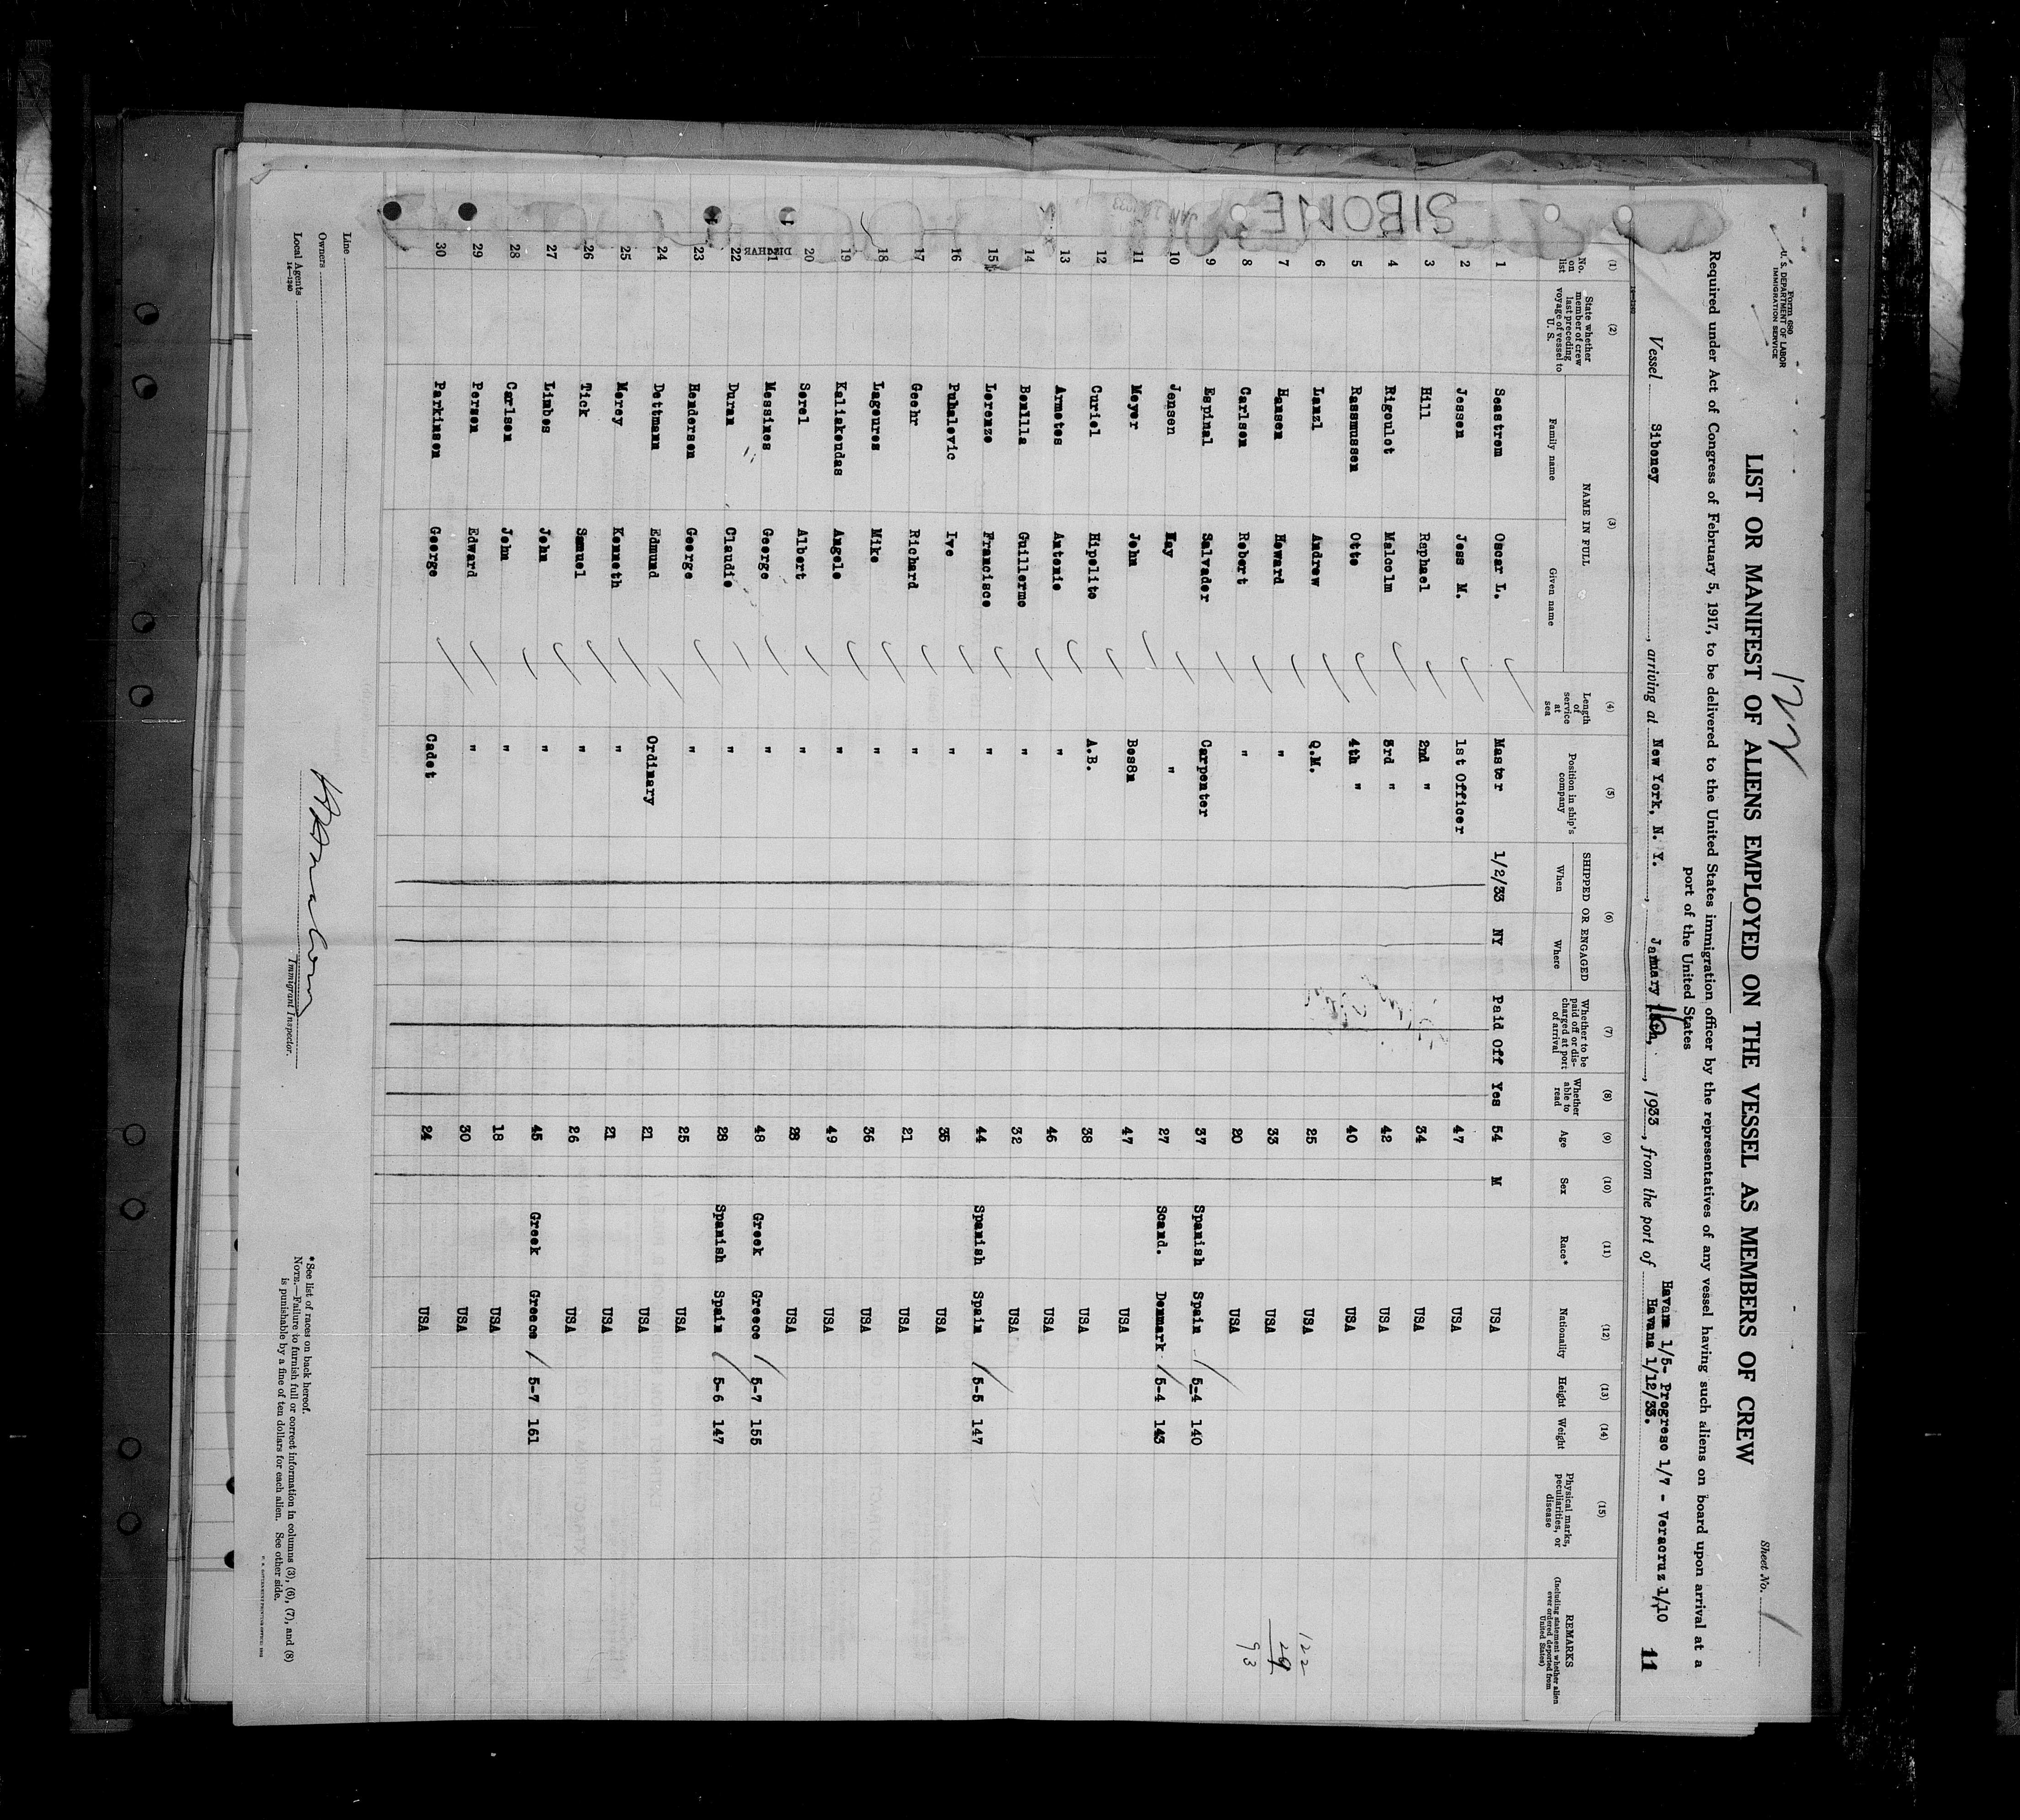 Form 680
U. S. DEPARTMENT OF LABOR
IMMIGRATION SERVICE
122
Sheet No. 1
LIST OR MANIFEST OF ALIENS EMPLOYED ON THE VESSEL AS MEMBERS OF CREW
Required under Act of Congress of February 5, 1917, to be delivered to the United States immigration officer by the representatives of any vessel having such aliens on board upon arrival at a
port of the United States
Havana 1/5- Progreso 1/7 - Veracruz 1/10
Vessel Siboney, arriving at New York, N. Y., January 16, 1933, from the port of Havana 1/12/33. 11
(1) (2) (3) (4) (5) (6) (7) (8) (9) (10) (11) (12) (13) (14) (15)
No. on list State whether member of crew last preceding voyage of vessel to U. S. NAME IN FULL Family name Given name Length of service at sea Position in ship's company SHIPPED OR ENGAGED When Where Whether to be paid off or discharged at port of arrival Whether able to read Age Sex Race* Nationality Height Weight Physical marks, peculiarities, or disease REMARKS (Including statement whether alien ever ordered deported from United States)
1 Seastrom Oscar L. Master 1/2/33 NY Paid Off Yes 54 M USA
2 Jessen Jess M. 1st Officer 47 USA
3 Hill Raphael 2nd " 34 USA
4 Rigoulot Malcolm 3rd " 42 USA
5 Rasmussen Otto 4th " 40 USA
6 Lanzl Andrew Q.M. 25 USA 122
7 Hansen Howard " 33 USA 29
8 Carlson Robert " 20 USA 93
9 Espinal Salvador Carpenter 37 Spanish Spain 5-4 140
10 Jensen Kay " 27 Scand. Denmark 5-4 143
11 Meyer John Bos8n 47 USA
12 Curiel Hipolito A.B. 38 USA
13 Armotes Antonio " 46 USA
14 Bonilla Guillermo " 32 USA
15 Lorenzo Francisco " 44 Spanish Spain 5-5 147
16 Puhalovic Ivo " 35 USA
17 Goehr Richard " 21 USA
18 Lagoures Mike " 36 USA
19 Kaliakoudas Angelo " 49 USA
20 Sorel Albert " 28 USA
21 Messinos George " 48 Greek Greece 5-7 155
22 Duran Claudio " 28 Spanish Spain 5-6 147
23 Henderson George " 25 USA
24 Dettmann Edmund Ordinary 21 USA
25 Morey Kenneth " 21 USA
26 Tick Samuel " 26 USA
27 Limbos John " 45 Greek Greece 5-7 161
28 Carlson John " 18 USA
29 Person Edward " 30 USA
30 Parkinson George Cadet 24 USA
SIBONE
Line
Owners
Local Agents
14—1240
Immigrant Inspector.
* See list of races on back hereof.
NOTE.—Failure to furnish full or correct information in columns (3), (6), (7), and (8)
is punishable by a fine of ten dollars for each alien. See other side.